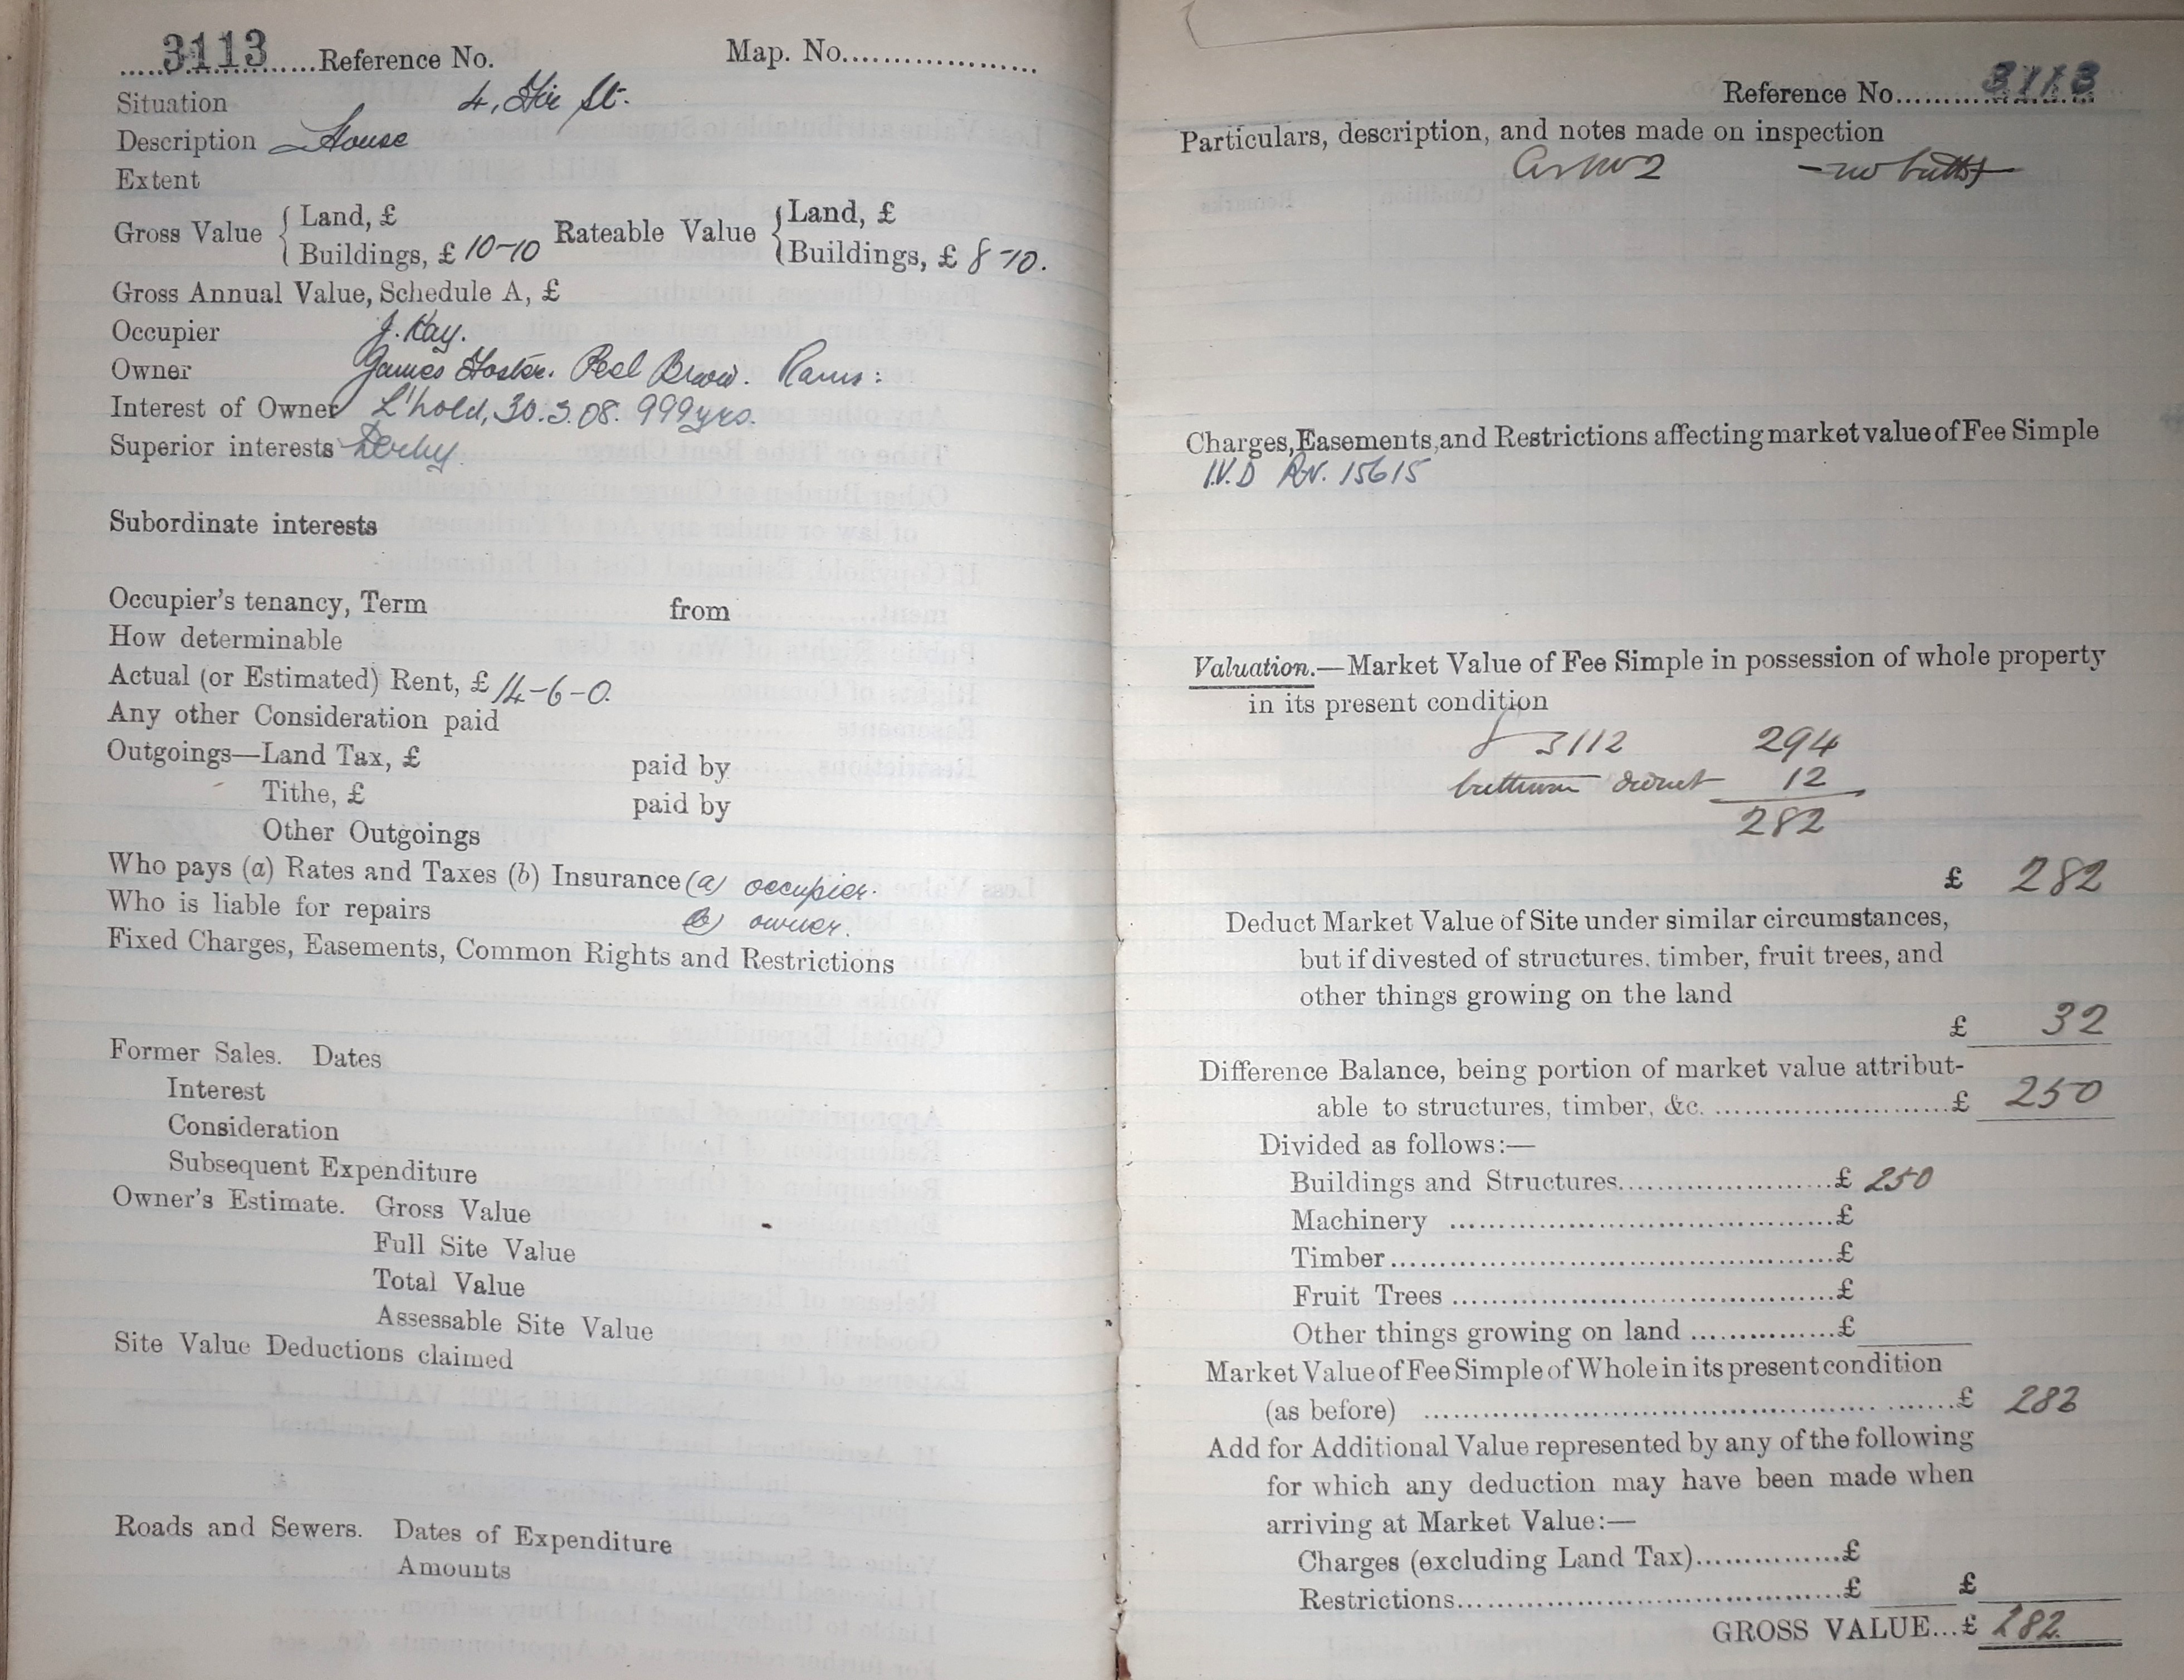 3113 Reference No. Map. No.
Situation 4, Fir St.
Description House
Extent
Gross Value { Land, £ Rateable Value { Land, £
Buildings, £ 10-10 Buildings, £ 8-10.
Gross Annual Value, Schedule A, £
Occupier J. Kay.
Owner James Foster. Peel Brow. Rams:
Interest of Owner L'hold, 30.3.08. 999 yrs.
Superior interests Derby.
Subordinate interests
Occupier's tenancy, Term from
How determinable
Actual (or Estimated) Rent, £ 14-6-0.
Any other Consideration paid
Outgoings—Land Tax, £ paid by
Tithe, £ paid by
Other Outgoings
Who pays (a) Rates and Taxes (b) Insurance (a) occupier.
Who is liable for repairs (b) owner.
Fixed Charges, Easements, Common Rights and Restrictions
Former Sales. Dates
Interest
Consideration
Subsequent Expenditure
Owner's Estimate. Gross Value
Full Site Value
Total Value
Assessable Site Value
Site Value Deductions claimed
Roads and Sewers. Dates of Expenditure
Amounts
Reference No. 3113
Particulars, description, and notes made on inspection
As No 2 — no
Charges, Easements, and Restrictions affecting market value of Fee Simple
I.V.D RN. 15615
Valuation.—Market Value of Fee Simple in possession of whole property
in its present condition
3112 294
deduct 12
282
£ 282
Deduct Market Value of Site under similar circumstances,
but if divested of structures, timber, fruit trees, and
other things growing on the land
£ 32
Difference Balance, being portion of market value attribut-
able to structures, timber, &c. £ 250
Divided as follows:—
Buildings and Structures £ 250
Machinery £
Timber £
Fruit Trees £
Other things growing on land £
Market Value of Fee Simple of Whole in its present condition
(as before) £ 282
Add for Additional Value represented by any of the following
for which any deduction may have been made when
arriving at Market Value:—
Charges (excluding Land Tax) £
Restrictions £ £
GROSS VALUE... £ 282